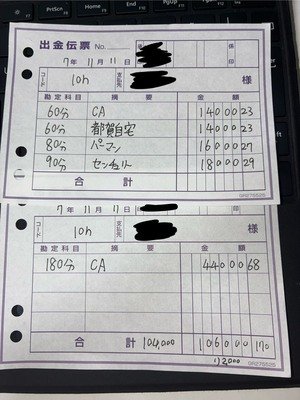 PrtScn
Home
End
PgUp
出金伝票 No.
係印
7年 11月 11日
コード 10h 支払先 様
勘定科目 摘要 金額
60分 CA 14000 23
60分 都賀自宅 14000 23
80分 パーマン 16000 27
90分 センチュリー 18000 29
合計
GR275525
7年 11月 11日 印
コード 10h 支払先 様
勘定科目 摘要 金額
180分 CA 44000 68
合計 104,000 106000 170
GR275525